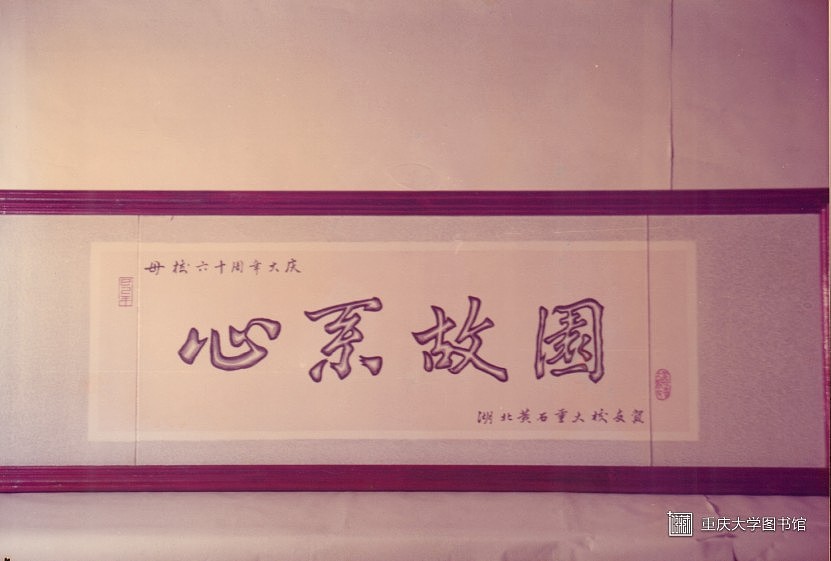 母校六十周年大庆
心系故園
湖北黄石重大校友贺
重庆大学图书馆